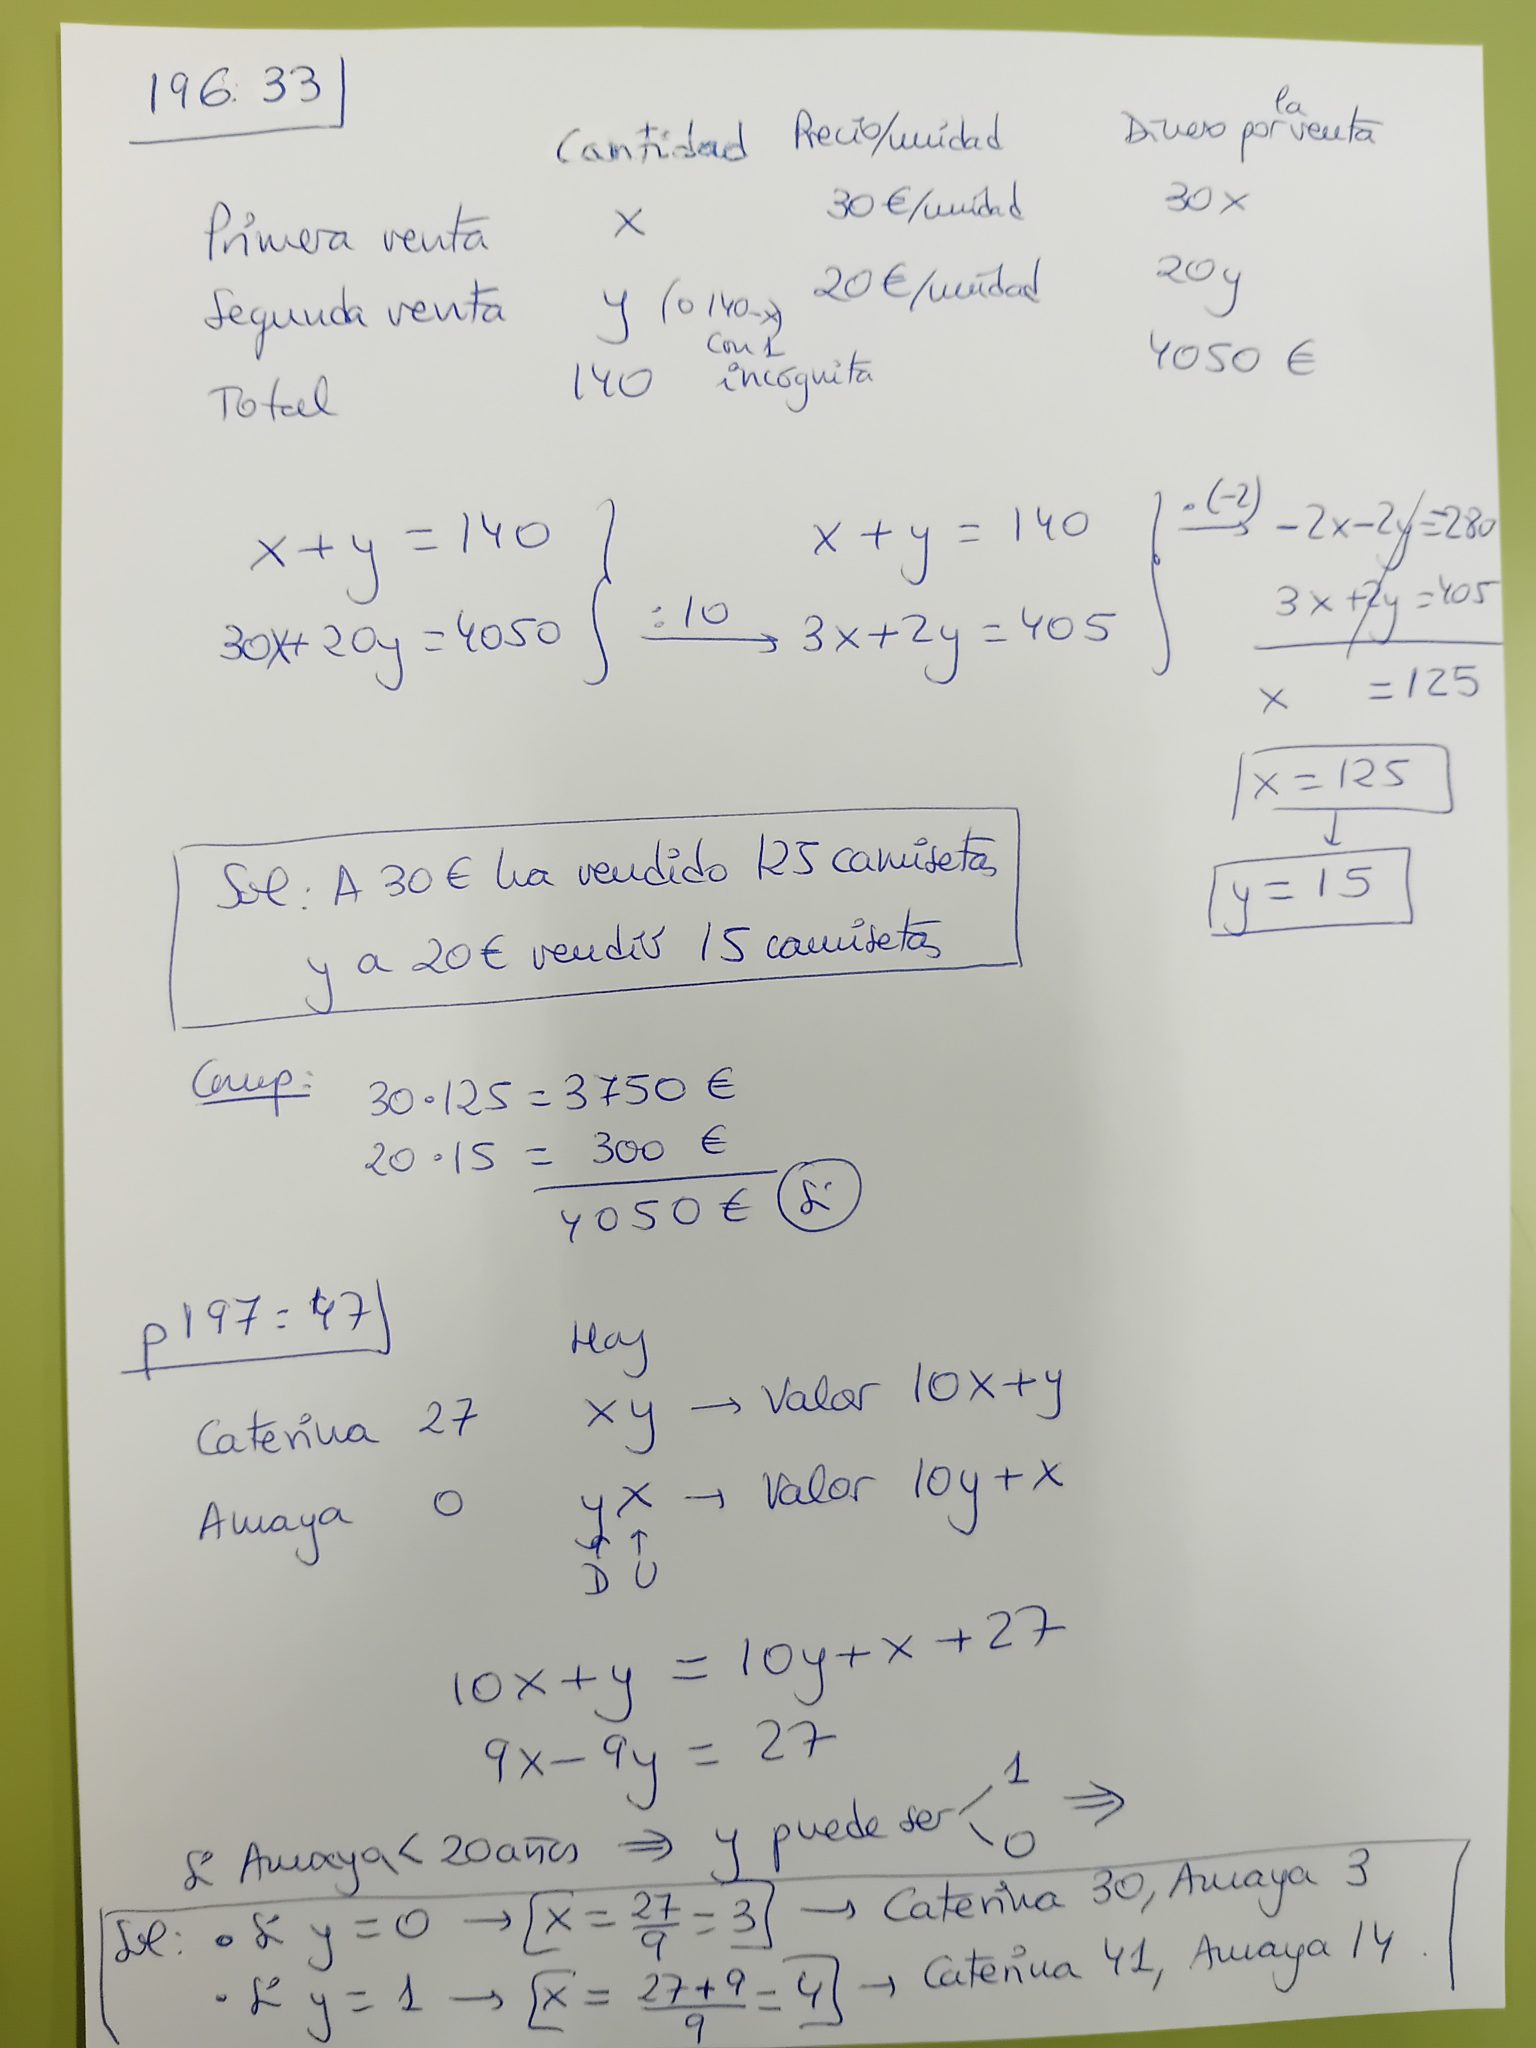 196: 33
Cantidad Precio/unidad Dinero por la venta
Primera venta x 30 €/unidad 30x
Segunda venta y (o 140-x) 20 €/unidad 20y
con 1 incógnita
Total 140 4050 €
x + y = 140 x + y = 140 ·(-2) → -2x-2y=280
30x+20y=4050 :10 → 3x+2y=405 3x+2y=405
x =125
x = 125
↓
y = 15
Sol: A 30 € ha vendido 125 camisetas
y a 20 € vendió 15 camisetas
Comp: 30·125 = 3750 €
20·15 = 300 €
4050 € Sí
p197: 47
Hoy
Caterina 27 xy → Valor 10x+y
Amaya 0 yx → Valor 10y+x
↑ ↑
D U
10x+y = 10y+x+27
9x-9y = 27
Si Amaya < 20 años ⇒ y puede ser < 1 0 ⇒
Sol: • Si y = 0 → [x = 27/9 = 3] → Caterina 30, Amaya 3
• Si y = 1 → [x = 27+9/9 = 4] → Caterina 41, Amaya 14.